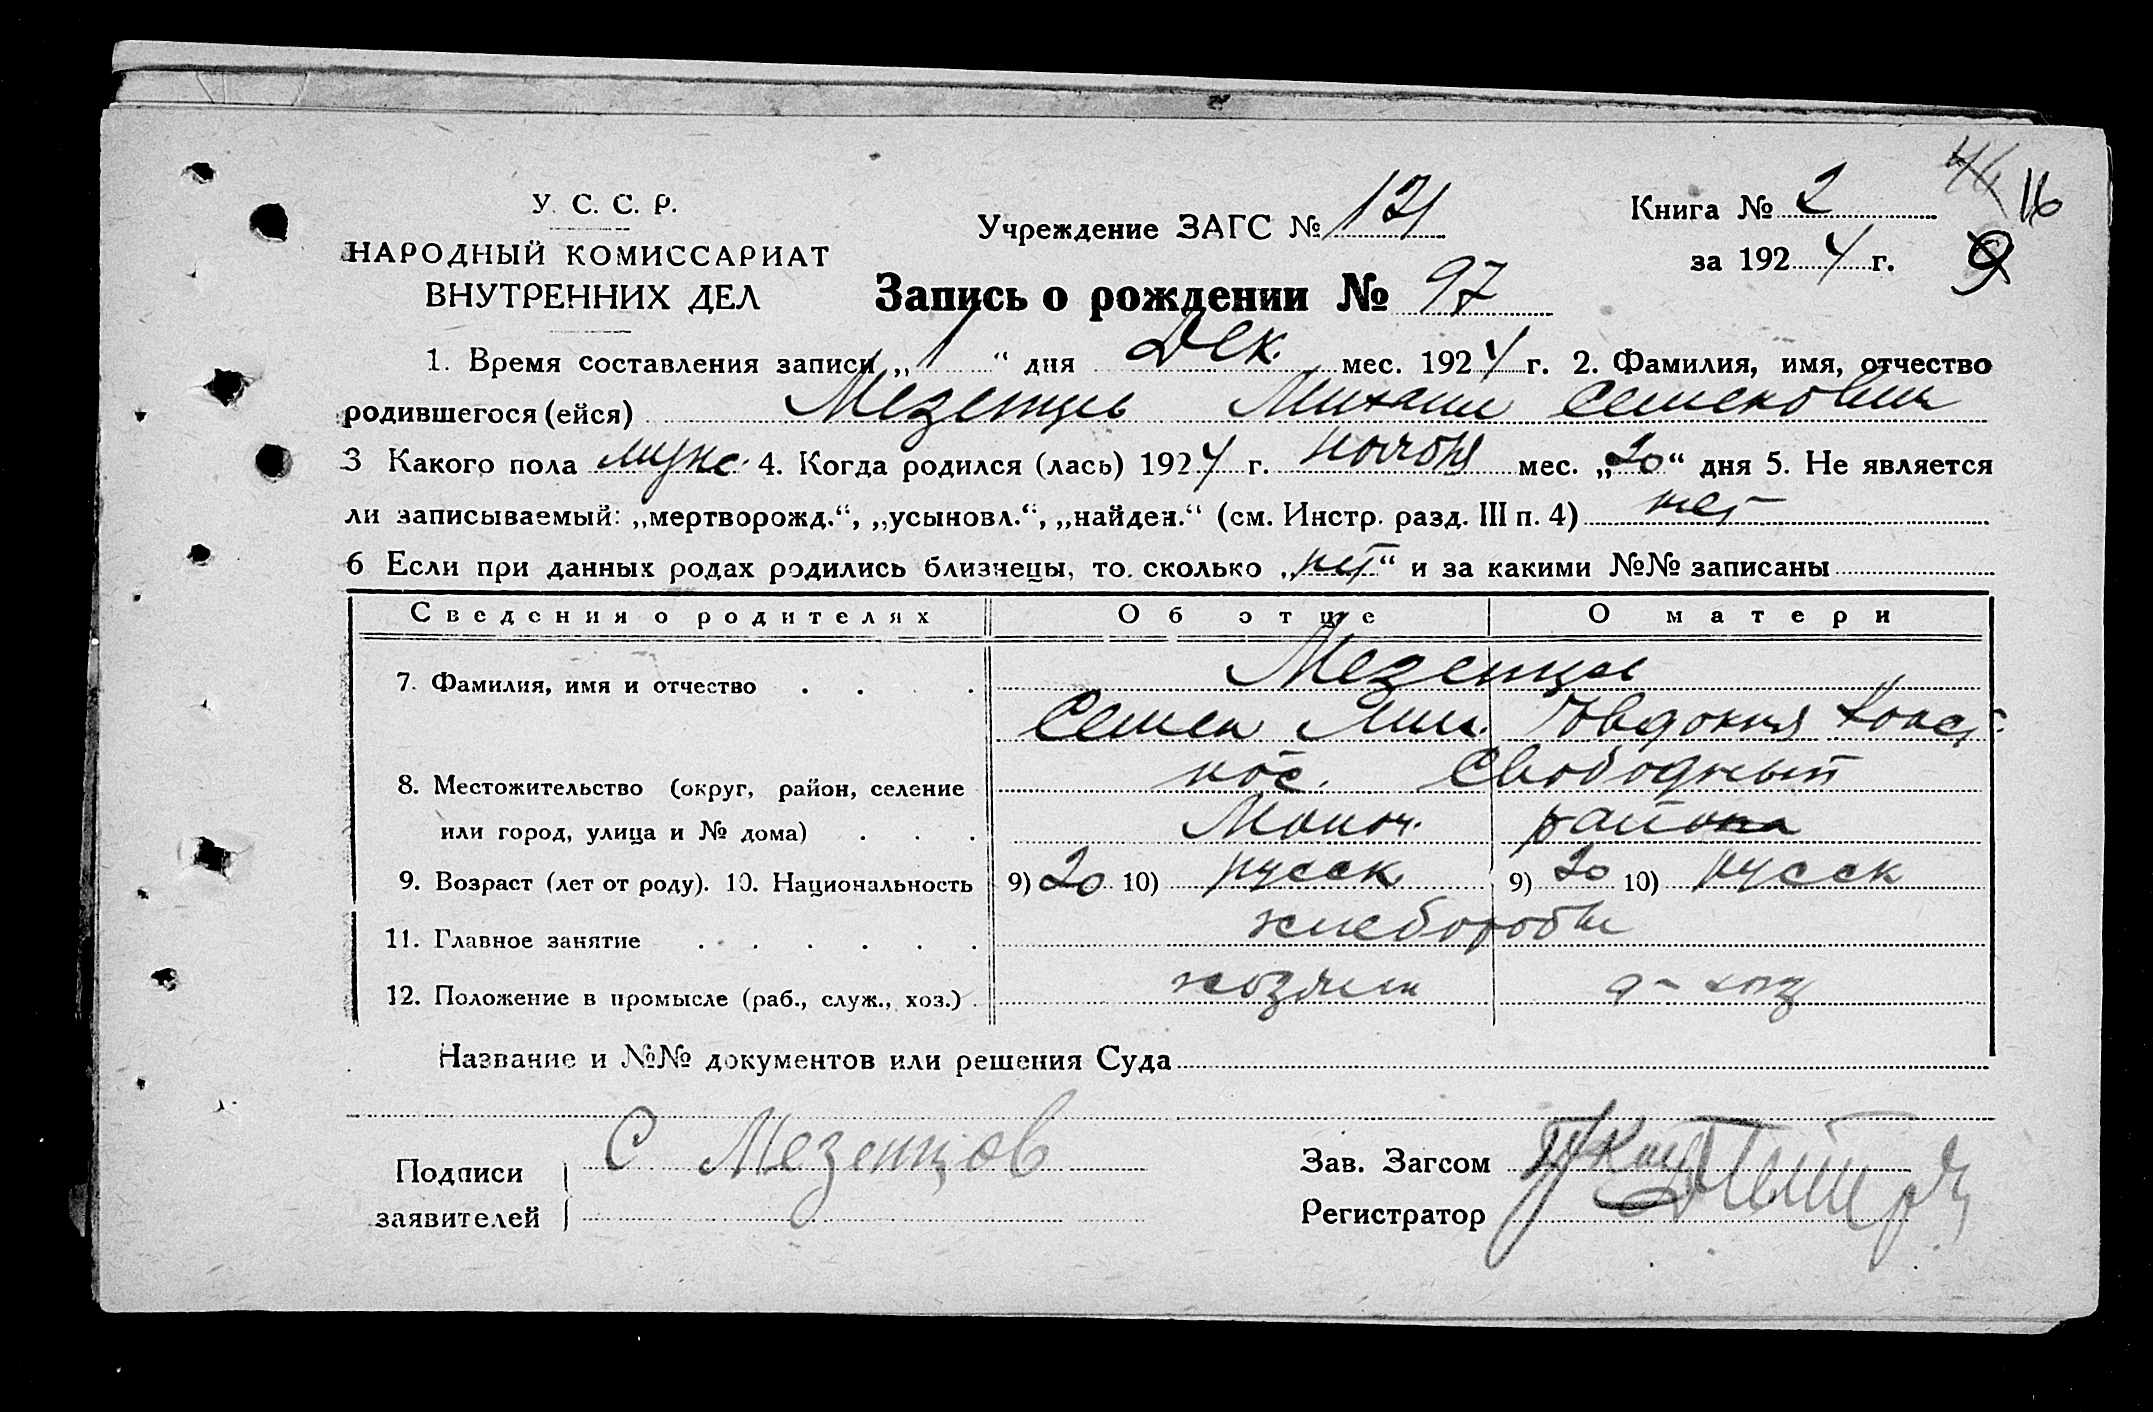 У. С. С. Р.
НАРОДНЫЙ КОМИССАРИАТ
ВНУТРЕННИХ ДЕЛ
Учреждение ЗАГС № 121
Книга № 2
16
за 1924 г.
9
Запись о рождении № 97
1. Время составления записи „1“ дня Дек. мес. 1924 г. 2. Фамилия, имя, отчество
родившегося (ейся) Мезенцев Михаил Семенович
3 Какого пола мужс. 4. Когда родился (лась) 1924 г. ноября мес. „20“ дня 5. Не является
ли записываемый: „мертворожд.“, „усыновл.“, „найден.“ (см. Инстр. разд. III п. 4) нет
6 Если при данных родах родились близнецы, то. сколько „нет“ и за какими №№ записаны
Сведения о родителях Об отце О матери
7. Фамилия, имя и отчество Мезенцев
Семен Мих. Евдокия Конст.
8. Местожительство (округ, район, селение пос. Свободный
или город, улица и № дома) района
9. Возраст (лет от роду). 10. Национальность 9) 20 10) русск 9) 20 10) русск
11. Главное занятие хлеборобы
12. Положение в промысле (раб., служ., хоз.) хозяин д-хоз
Название и №№ документов или решения Суда
Подписи заявителей С Мезенцов
Зав. Загсом
Регистратор